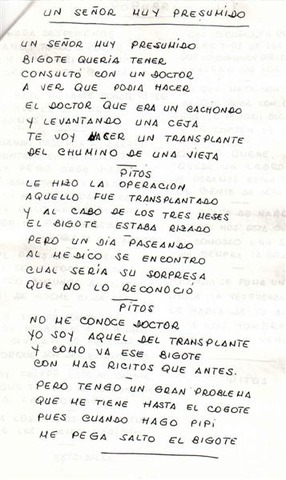 UN SEÑOR MUY PRESUMIDO
UN SEÑOR MUY PRESUMIDO
BIGOTE QUERIA TENER
CONSULTÓ CON UN DOCTOR
A VER QUE PODIA HACER
EL DOCTOR QUE ERA UN CACHONDO
Y LEVANTANDO UNA CEJA
TE VOY HACER UN TRANSPLANTE
DEL CHUMINO DE UNA VIEJA
PITOS
LE HIZO LA OPERACION
AQUELLO FUE TRANSPLANTADO
Y AL CABO DE LOS TRES MESES
EL BIGOTE ESTABA RIZADO
PERO UN DIA PASEANDO
AL MEDICO SE ENCONTRO
CUAL SERIA SU SORPRESA
QUE NO LO RECONOCIÓ
PITOS
NO ME CONOCE DOCTOR
YO SOY AQUEL DEL TRANSPLANTE
Y COMO VA ESE BIGOTE
CON MAS RICITOS QUE ANTES.
PERO TENGO UN GRAN PROBLEMA
QUE ME TIENE HASTA EL COGOTE
PUES CUANDO HAGO PIPÍ
ME PEGA SALTO EL BIGOTE